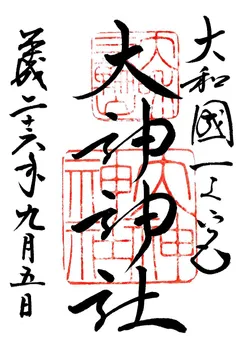 大和國一之宮
大神神社
大神神社
平成二十六年九月五日